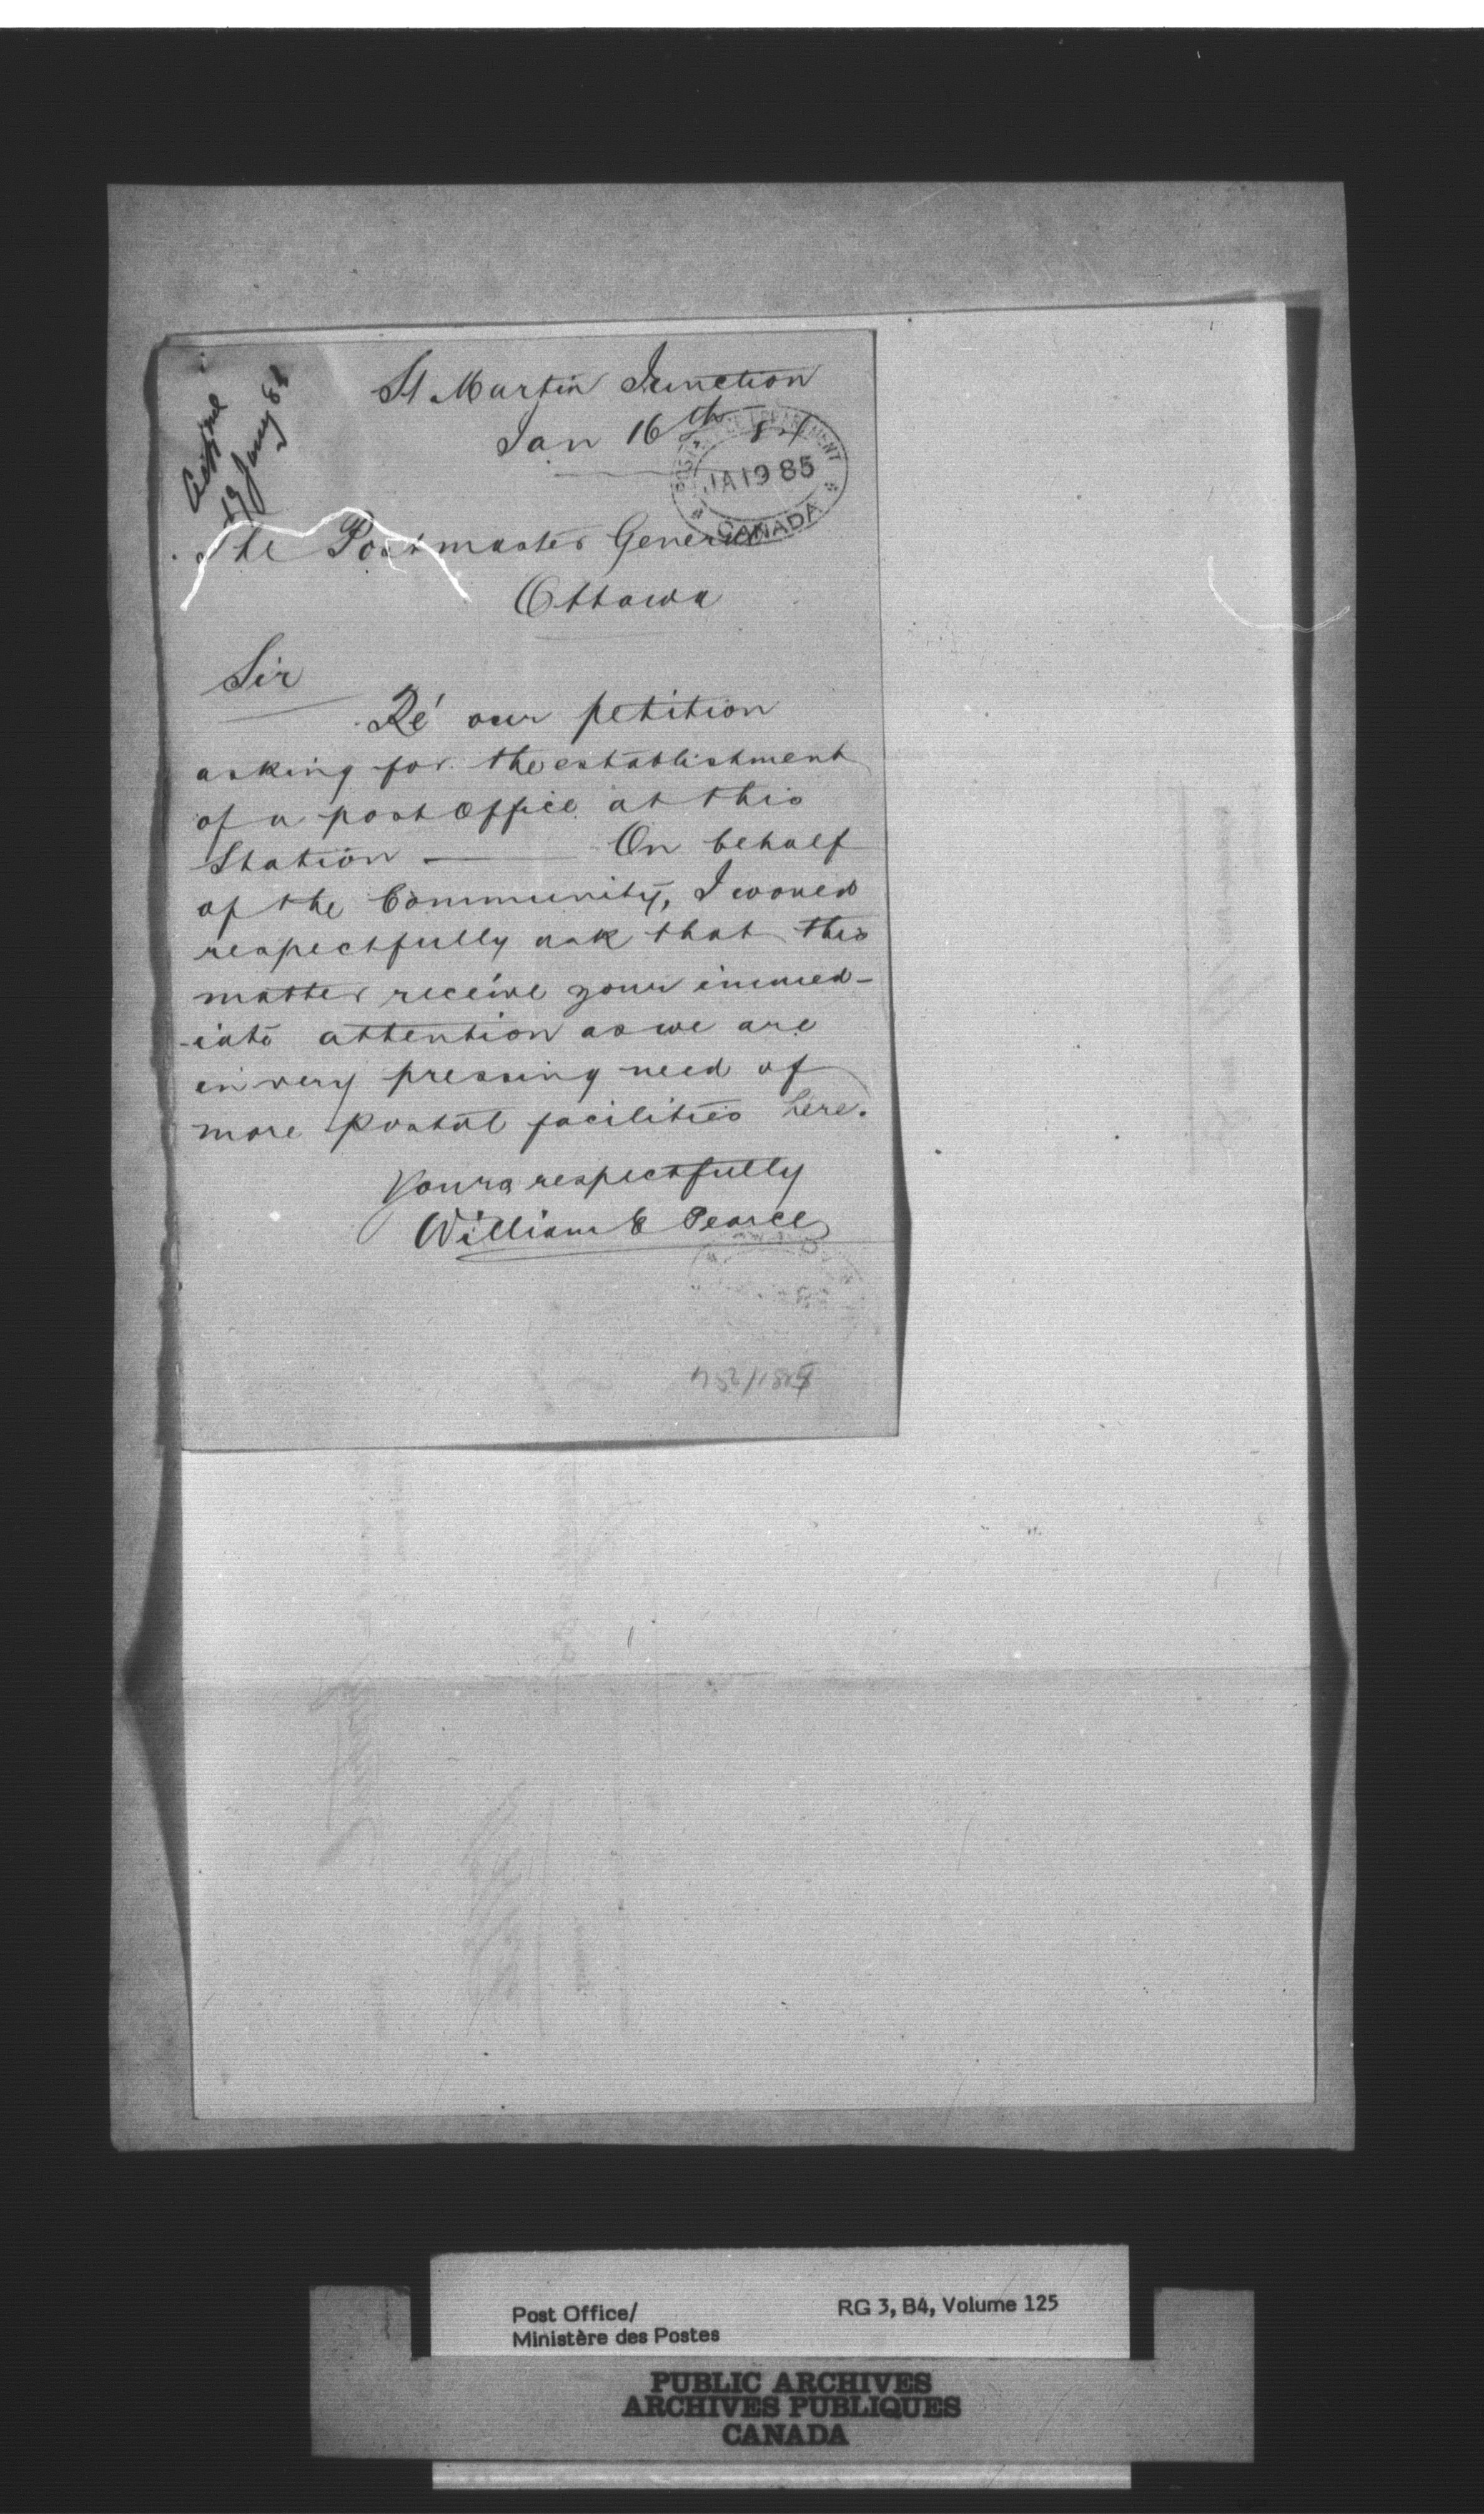 19 Jany 84
St Martin Junction
Jan 16th 84
POST OFFICE DEPARTMENT
JA 19 85
CANADA
The Postmaster General
Ottawa
Sir
Re' our petition
asking for the establishment
of a post Office at this
Station — On behalf
of the Community, I would
respectfully ask that this
matter receive your immed-
-iate attention as we are
in very pressing need of
more postal facilities here.
Yours respectfully
William E Pearce
Post Office/
Ministère des Postes
RG 3, B4, Volume 125
PUBLIC ARCHIVES
ARCHIVES PUBLIQUES
CANADA